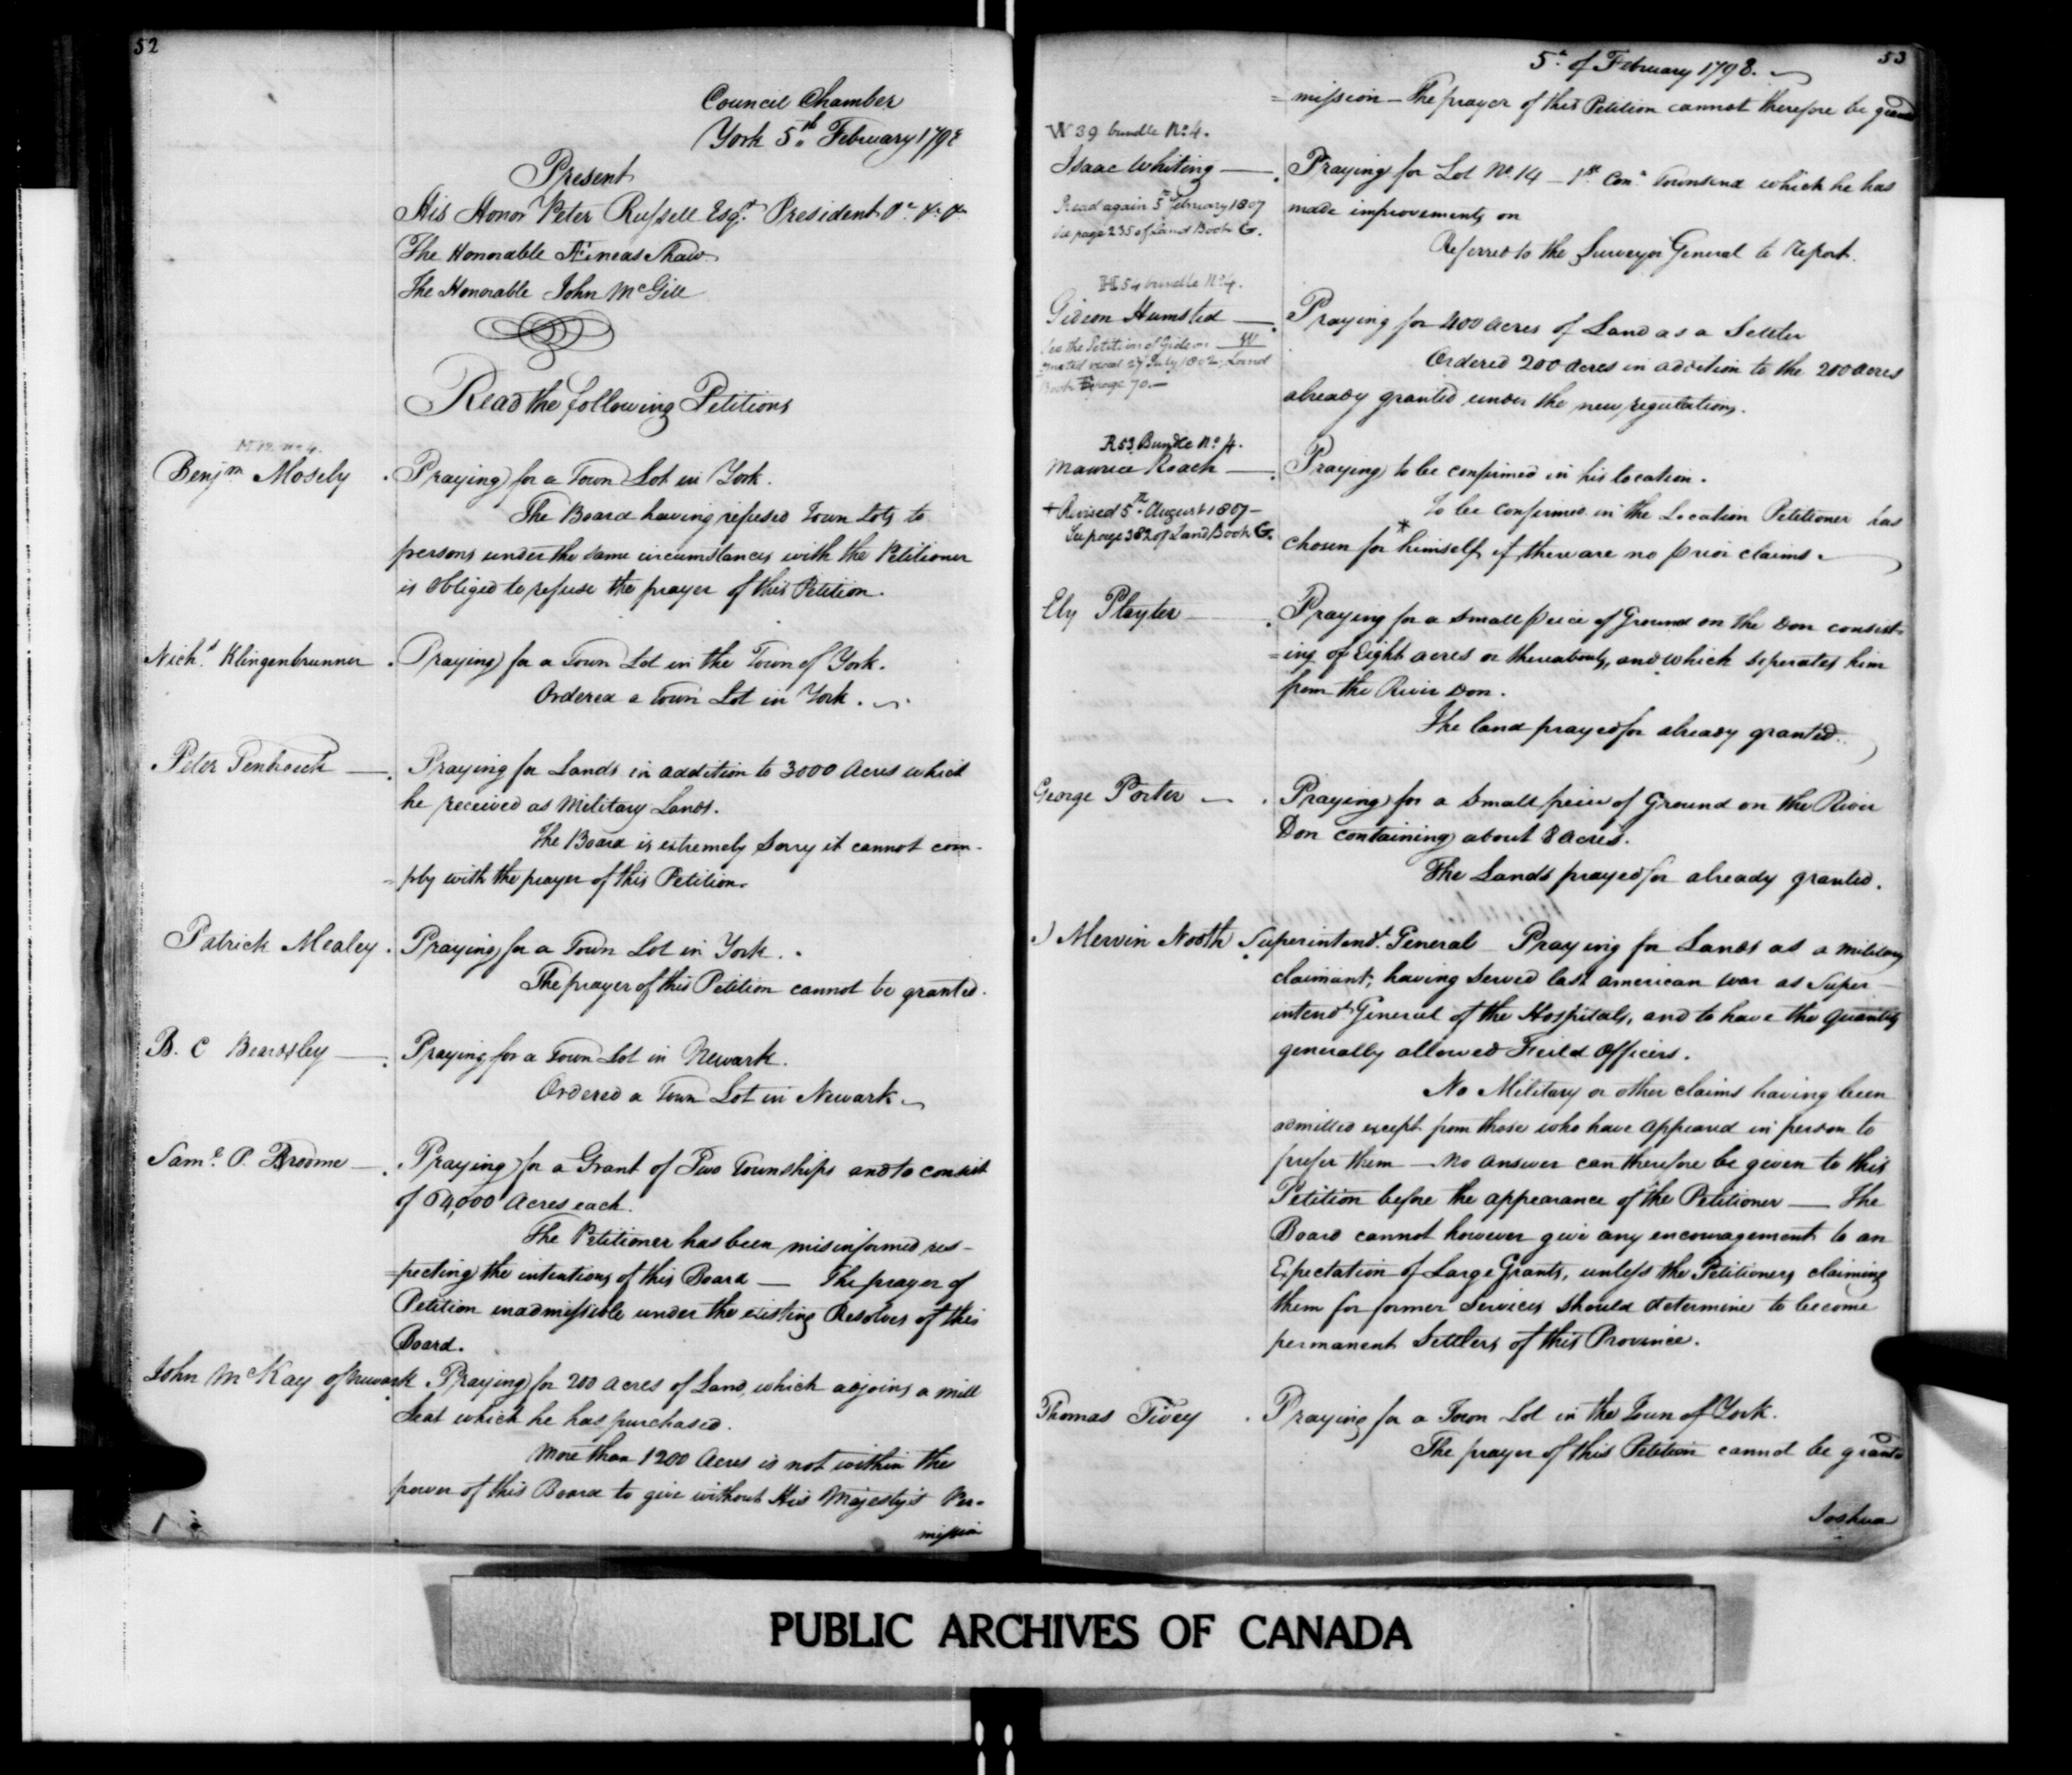 52
Council Chamber
York 5th February 1798
Present
His Honor Peter Russell Esqr. President &c &c &c
The Honorable Æneas Shaw
The Honorable John McGill
Read the following Petitions
Benjm Mosely . Praying for a Town Lot in York.
The Board having refused Town Lots to
persons under the same circumstances with the Petitioner
is obliged to refuse the prayer of this Petition.
Nichs Klingenbrunner . Praying for a Town Lot in the Town of York.
Ordered a Town Lot in York.
Peter Tenbroeck — . Praying for Lands in addition to 3000 Acres which
he received as Military Lands.
The Board is extremely Sorry it cannot com-
=ply with the prayer of this Petition.
Patrick Mealey . Praying for a Town Lot in York.
The prayer of this Petition cannot be granted.
B. C Beardsley — . Praying for a Town Lot in Newark.
Ordered a Town Lot in Newark
Saml. P. Broome — . Praying for a Grant of Two Townships and to consist
of 64,000 Acres each.
The Petitioner has been misinformed res-
=pecting the intentions of this Board — The prayer of
Petition inadmissible under the existing Resolves of this
Board.
John McKay of Newark . Praying for 200 acres of Land, which adjoins a mill
Seat which he has purchased.
More than 1200 Acres is not within the
power of this Board to give without His Majesty's Per-
mission
5th of February 1798. 53
=mission — The prayer of this Petition cannot therefore be granted
W 39 bundle No. 4.
Isaac Whiting — . Praying for Lot No. 14 — 1st Con. Townsend which he has
made improvements on
Read again 5th February 1807
see page 235 of Land Book G.
Referred to the Surveyor General to Report.
H 54 bundle No. 4.
Gideon Humsted — . Praying for 400 acres of Land as a Settler
See the Petition of Gideon
27 July 1802, Land
Book page 70.—
Ordered 200 acres in addition to the 200 acres
already granted under the new regulations.
R 53 Bundle No. 4.
Maurice Roach — . Praying to be confirmed in his location.
+ Revised 5th August 1807—
See page 382 of Land Book G.
To be confirmed in the Location Petitioner has
chosen for * himself if there are no prior claims.
Ely Playter . Praying for a Small peice of Ground on the Don consist-
=ing of Eight acres or thereabouts, and which seperates him
from the River Don.
The land prayed for already granted.
George Porter — . Praying for a Small peice of Ground on the River
Don containing about 8 acres.
The Lands prayed for already granted.
Mervin Nooth Superintendt. General Praying for Lands as a military
claimant, having served last american War as Super-
intendt. General of the Hospitals, and to have the quantity
generally allowed Feild Officers.
No Military or other claims having been
admitted except from those who have appeared in person to
prefer them — No answer can therefore be given to this
Petition before the appearance of the Petitioner — The
Board cannot however give any encouragement to an
Expectation of Large Grants, unless the Petitioners claiming
them for former Services should determine to become
permanent Settlers of this Province.
Thomas Tivey . Praying for a Town Lot in the Town of York.
The prayer of this Petition cannot be granted
Joshua
PUBLIC ARCHIVES OF CANADA